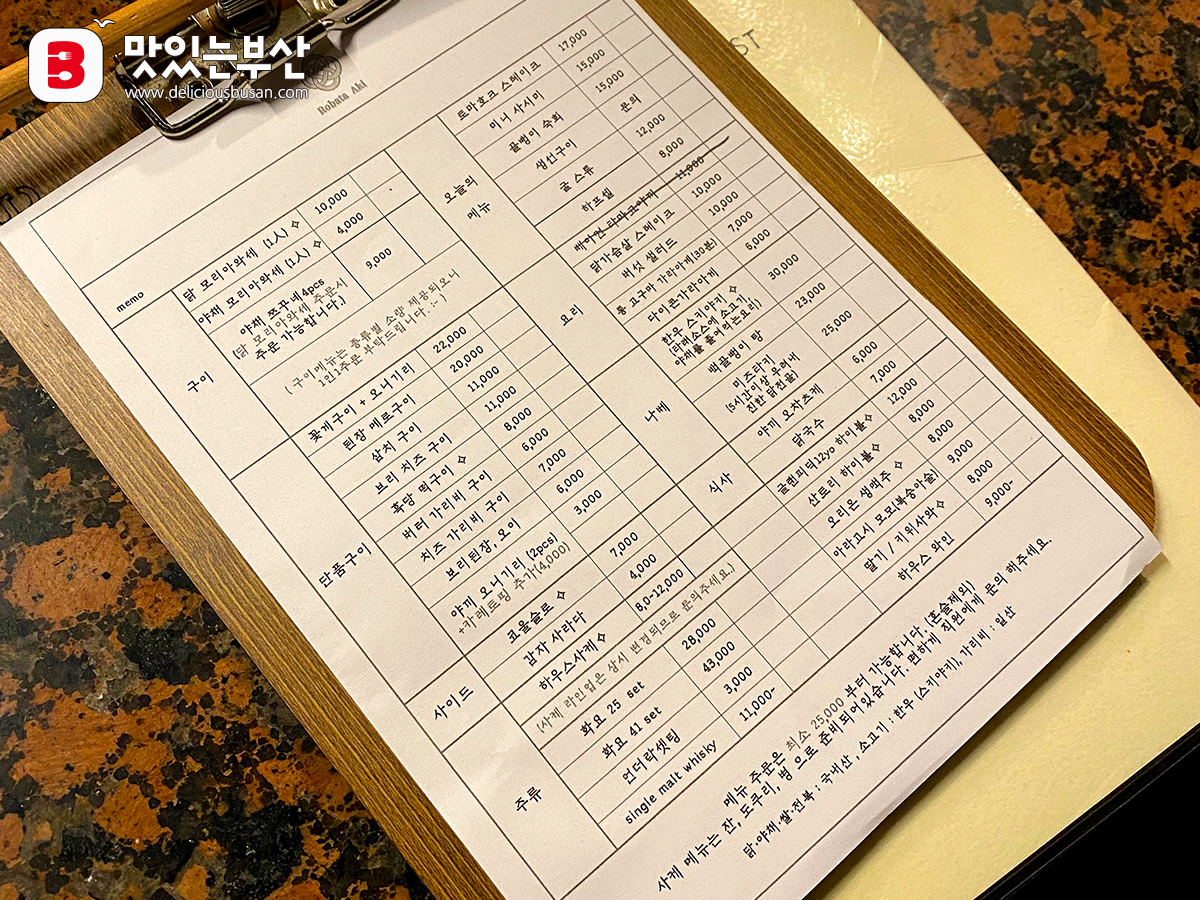 맛있는부산
www.deliciousbusan.com
Robata Aki
memo
구이
닭 모리아와세 (1人) ✧ 10,000
야채 모리아와세 (1人) ✧ 4,000
야채 쯔꾸네 4pcs 9,000
(닭 모리아와세 주문시
주문 가능합니다.)
( 구이메뉴는 종류별 소량 제공되오니
1인1주문 부탁드립니다. :- )
단품구이
꽃게구이 + 오니기리 22,000
된장 메로구이 20,000
삼치 구이 11,000
브리 치즈 구이 11,000
흑당 떡구이 ✧ 8,000
버터 가리비 구이 6,000
치즈 가리비 구이 7,000
보리된장, 오이 6,000
야끼 오니기리 (2pcs) 3,000
+카레토핑 추가(4,000)
사이드
코울슬로 ✧ 7,000
감자 사라다 4,000
주류
하우스사케 ✧ 8,0-12,000
(사케 라인업은 상시 변경되므로 문의주세요.)
화요 25 set 28,000
화요 41 set 43,000
언더락셋팅 3,000
single malt whisky 11,000-
오늘의
메뉴
토마호크 스테이크 17,000
미니 사시미 15,000
골뱅이 숙회 15,000
생선구이 문의
굴 스튜 12,000
하프쉘 8,000
요리
베이컨 11,000
닭가슴살 스테이크 10,000
버섯 샐러드 10,000
통 고구마 가라아게(30분) 7,000
다이콘가라아게 6,000
한우 스키야키 ✧ 30,000
(타래소스에 소고기,
야채를 졸여먹는요리)
나베
백골뱅이 탕 23,000
미즈타키 25,000
(5시간이상 우려내
진한 닭전골)
식사
야끼 오차즈케 6,000
닭국수 7,000
글렌피딕12yo 하이볼✧ 12,000
산토리 하이볼✧ 8,000
오리온 생맥주 ✧ 8,000
아라고시 모모(복숭아술) 9,000
딸기 / 키위사와✧ 8,000
하우스 와인 9,000-
메뉴 주문은 최소 25,000 부터 가능합니다 (혼술제외)
사케 메뉴는 잔, 도쿠리, 병 으로 준비되어있습니다. 편하게 직원에게 문의 해주세요.
닭·야채·쌀·전복 : 국내산 , 소고기 : 한우 (스키야키), 가리비 : 일산